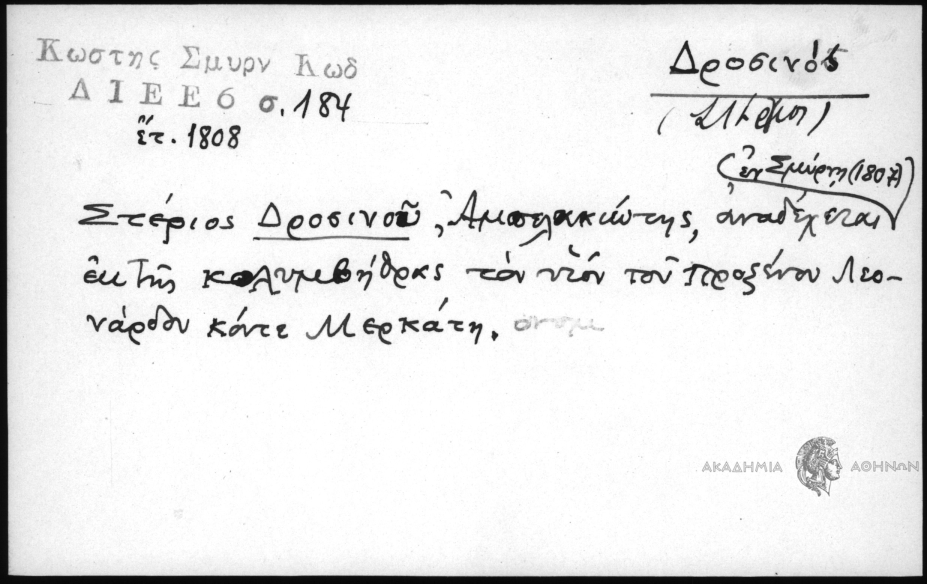 Κωστης Σμυρν Κωδ
Δ Ι Ε Ε 6 σ. 184
ἔτ. 1808
Δροσινός
(ἐν Σμύρνῃ (1807)
Στέριος Δροσινοῦ, Ἀμπελακιώτης, ἀναδέχεται
ἐκ τῆς κολυμβήθρας τὸν υἱὸν τοῦ προξένου Λεο-
νάρδου κόντε Μερκάτη.
ΑΚΑΔΗΜΙΑ ΑΘΗΝΩΝ